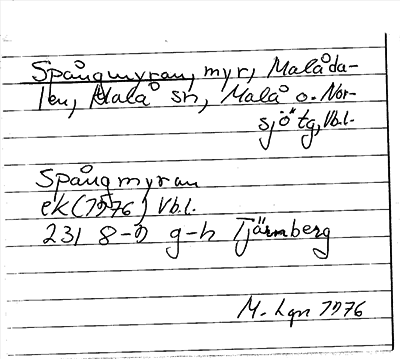 Spångmyran, myr, Malåda-
len, Malå sn, Malå o. Nor-
sjö tg, Vb.l.
Spångmyran
ek (1976) Vb.l.
231 8-9 g-h Tjärnberg
M. Lgn 1976